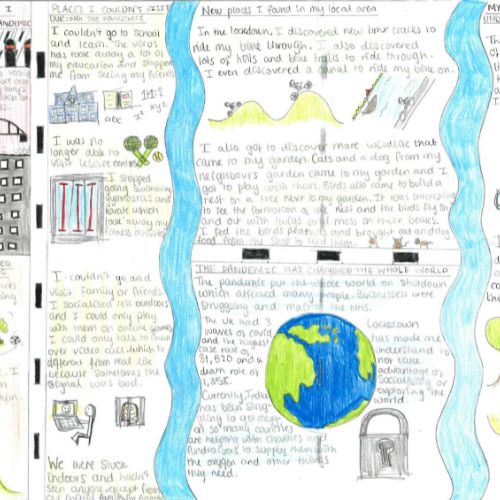 PLACES I COULDN'T VISIT
DURING THE PANDEMIC
I couldn't go to school
and learn. The virus
has took away a lot of
my education and stopped
me from seeing my friends.
abc
x² xy²
I was no
longer able to
visit leisure centres.
I stopped
going swimming
gymnastics and
karate which
took away my
fitness activities
I couldn't go and
visit family or friends.
I socialised less outdoors
and I could only play
with them on online games.
I could only talk to them
over video call which is
different from real life
because sometimes the
signal was bad.
We were stuck
indoors and hadn't
seen anyone except from
New places I found in my local area
In the lockdown, I discovered new bike tracks to
ride my bike through. I also discovered
lots of hills and bike trails to ride through.
I even discovered a canal to ride my bike on.
I also got to discover more wildlife that
came to my garden. Cats and a dog from my
neighbours garden came to my garden and I
got to play with them. Birds also came to build a
nest on a tree next to my garden. It was interesting
to see the formation of the nest and the birds fly in
and out with twigs and moss on their beaks.
I fed the birds peanuts and brought cat and dog
food from the shop to feed them.
THE PANDEMIC HAS CHANGED THE WHOLE WORLD
The pandemic put the whole world on shutdown
which affected many people. Businesses were
struggling and most the NHS.
The UK had 3
waves of covid
and the highest
case rate of
81,520 and a
death rate of
1,358.
Currently, India
has been strug-
gling to get oxygen
so many countries
are helping with charities and
fundraisers to support them with
the oxygen and other things
they need.
Lockdown
has made me
understand to
not take
advantage of
socialising or
exploring the
world.